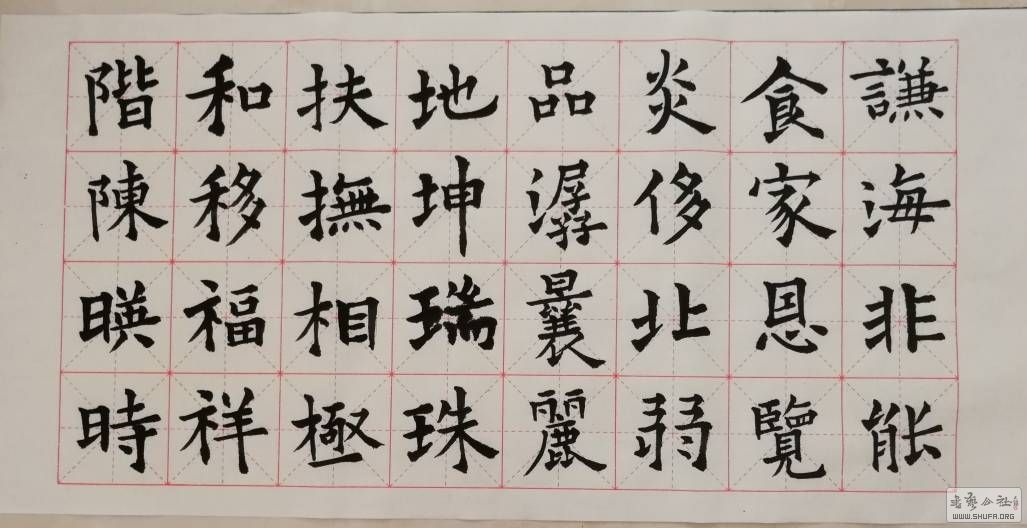 謙海非能
食家恩覽
炎侈北弱
品潺曩麗
地坤瑞珠
扶撫相極
和移福祥
階陳暎時
WWW.SHUFA.ORG